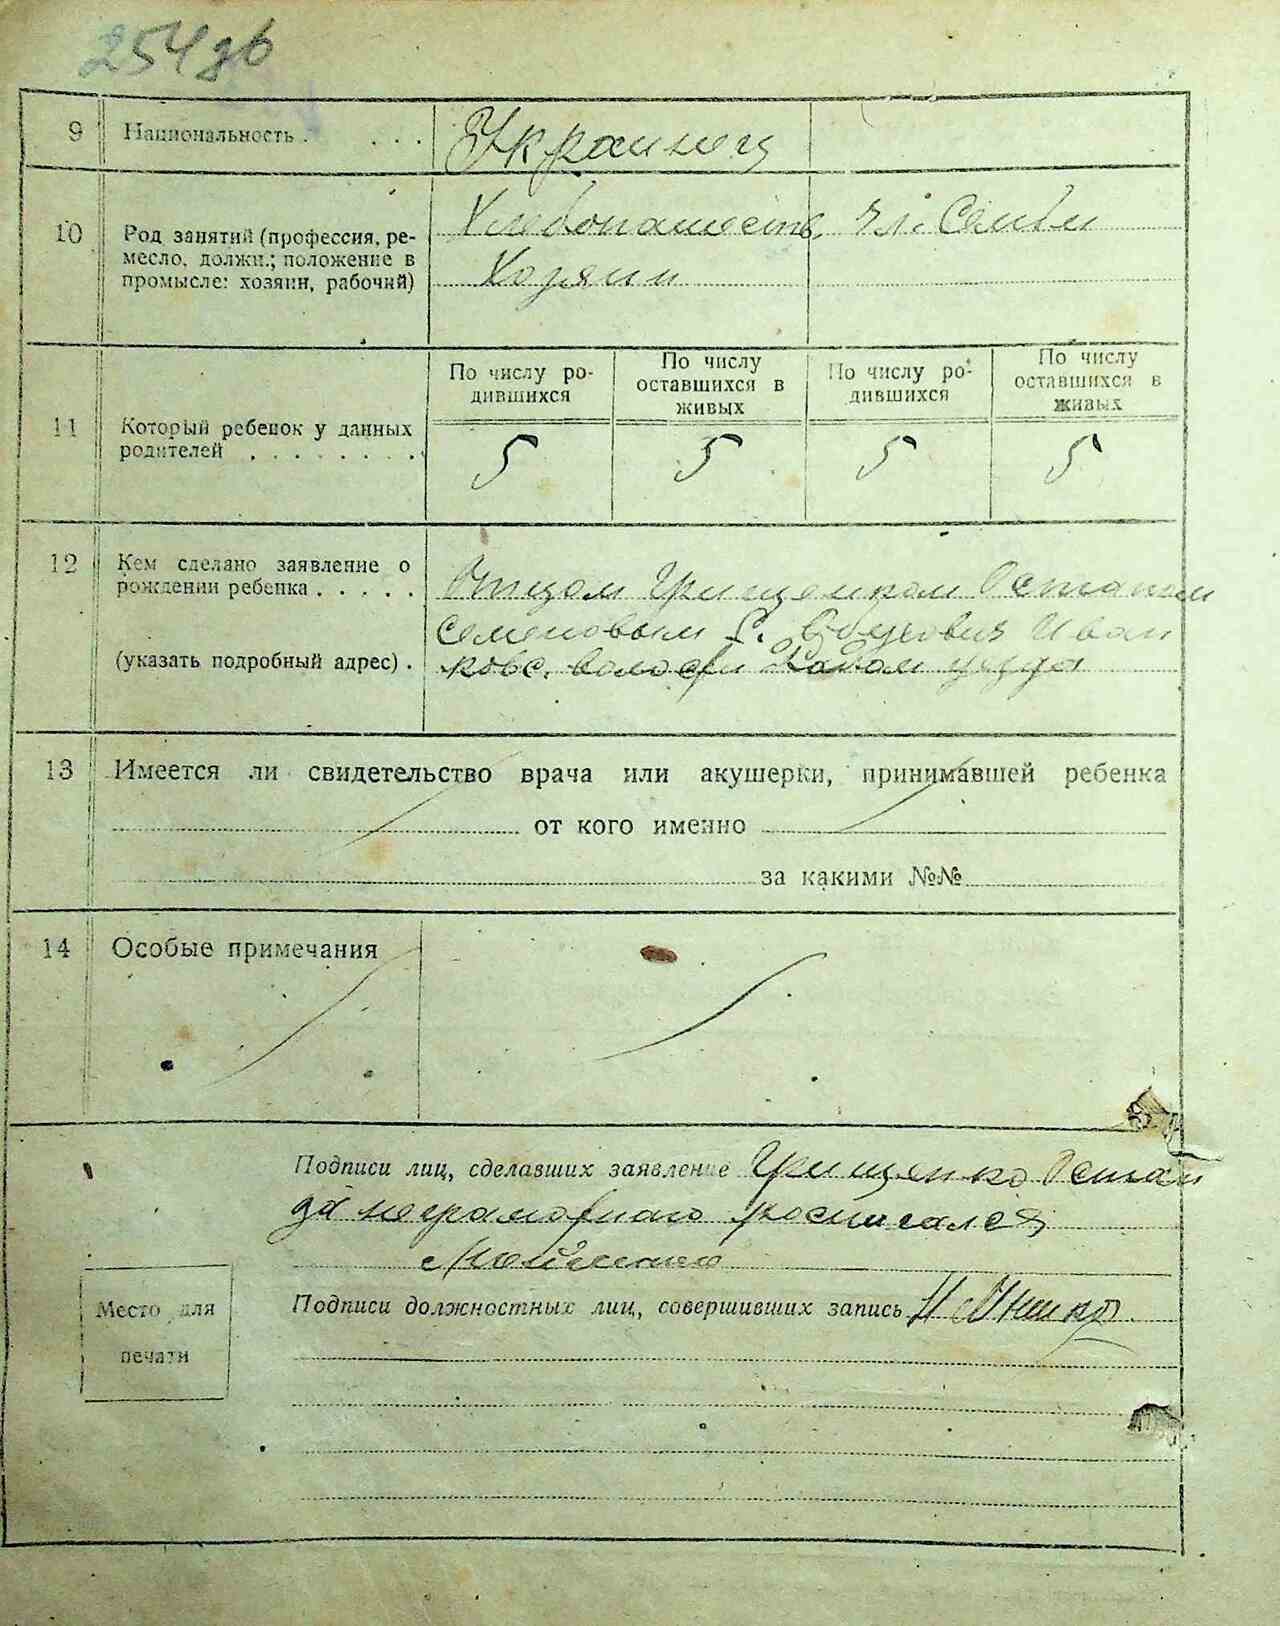 254зв
9 Национальность . . . . Украинец
10 Род занятий (профессия, ре-
месло, должн.; положение в
промысле: хозяин, рабочий)
Хлебопашеств. Чл. Семьи
Хозяин
11 Который ребенок у данных
родителей . . . . . . . .
По числу ро-
дившихся
По числу
оставшихся в
живых
По числу ро-
дившихся
По числу
оставшихся в
живых
5 5 5 5
12 Кем сделано заявление о
рождении ребенка . . . . .
(указать подробный адрес) .
Отцом Грищенком Остапом
Семеновым С. Иван
ковс. волости уезда
13 Имеется ли свидетельство врача или акушерки, принимавшей ребенка
от кого именно
за какими №№
14 Особые примечания
Подписи лиц, сделавших заявление Грищенко Остап
за неграмотного росписался
Место для
печати
Подписи должностных лиц, совершивших запись